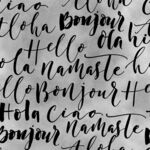 Ciao
Aloha Bonjour
Hello Ola
Hola Namaste
Hello Bonjour
Hola Ciao
Bonjour Namaste
Aloha